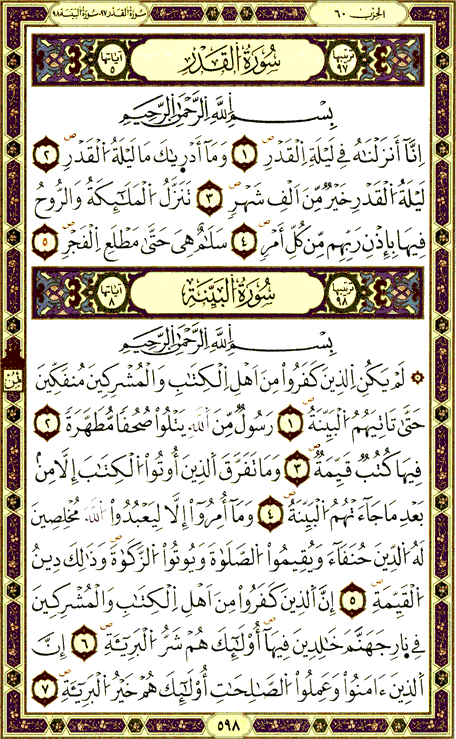 الحزب ٦٠
سُورَةُ القَدْر ٩٧ - سُورَةُ البَيِّنَة ٩٨
ترتيبها ٩٧ سُورَةُ الْقَدْرِ آياتها ٥
بِسْمِ اِللَّهِ اِلرَّحْمَٰنِ اِلرَّحِيمِ
اِنَّآ أَنزَلْنَٰهُ فِے لَيْلَةِ اِلْقَدْرِ ١ وَمَآ أَدْر۪يٰكَ مَا لَيْلَةُ اُلْقَدْرِ ٢
لَيْلَةُ اُلْقَدْرِ خَيْرٌ مِّنَ اَلْفِ شَهْرٍ ٣ تَنَزَّلُ اُلْمَلَٰٓئِكَةُ وَالرُّوحُ
فِيهَا بِإِذْنِ رَبِّهِم مِّن كُلِّ أَمْرٍ ٤ سَلَٰمٌ هِيَ حَتَّىٰ مَطْلَعِ اِلْفَجْرِ ٥
ترتيبها ٩٨ سُورَةُ الْبَيِّنَةِ آياتها ٨
بِسْمِ اِللَّهِ اِلرَّحْمَٰنِ اِلرَّحِيمِ
۞ لَمْ يَكُنِ اِلذِينَ كَفَرُواْ مِنَ اَهْلِ اِلْكِتَٰبِ وَالْمُشْرِكِينَ مُنفَكِّينَ
ثمن
حَتَّىٰ تَاتِيَهُمُ اُلْبَيِّنَةُ ١ رَسُولٌ مِّنَ اَللَّهِ يَتْلُواْ صُحُفاً مُّطَهَّرَةً ٢
فِيهَا كُتُبٌ قَيِّمَةٌ ٣ وَمَا تَفَرَّقَ اَلذِينَ أُوتُواْ اُلْكِتَٰبَ إِلَّا مِنۢ
بَعْدِ مَا جَآءَتْهُمُ اُلْبَيِّنَةُ ٤ وَمَآ أُمِرُوٓاْ إِلَّا لِيَعْبُدُواْ اُللَّهَ مُخْلِصِينَ
لَهُ اُلدِّينَ حُنَفَآءَ وَيُقِيمُواْ اُلصَّلَوٰةَ وَيُوتُواْ اُلزَّكَوٰةَ وَذَٰلِكَ دِينُ
اُلْقَيِّمَةِ ٥ إِنَّ اَلذِينَ كَفَرُواْ مِنَ اَهْلِ اِلْكِتَٰبِ وَالْمُشْرِكِينَ
فِے نارِ جَهَنَّمَ خَٰلِدِينَ فِيهَآ أُوْلَٰٓئِكَ هُمْ شَرُّ اُلْبَرِيٓـَٔةِ ٦ إِنَّ
اَلذِينَ ءَامَنُواْ وَعَمِلُواْ اُلصَّٰلِحَٰتِ أُوْلَٰٓئِكَ هُمْ خَيْرُ اُلْبَرِيٓـَٔةِ ٧
٥٩٨